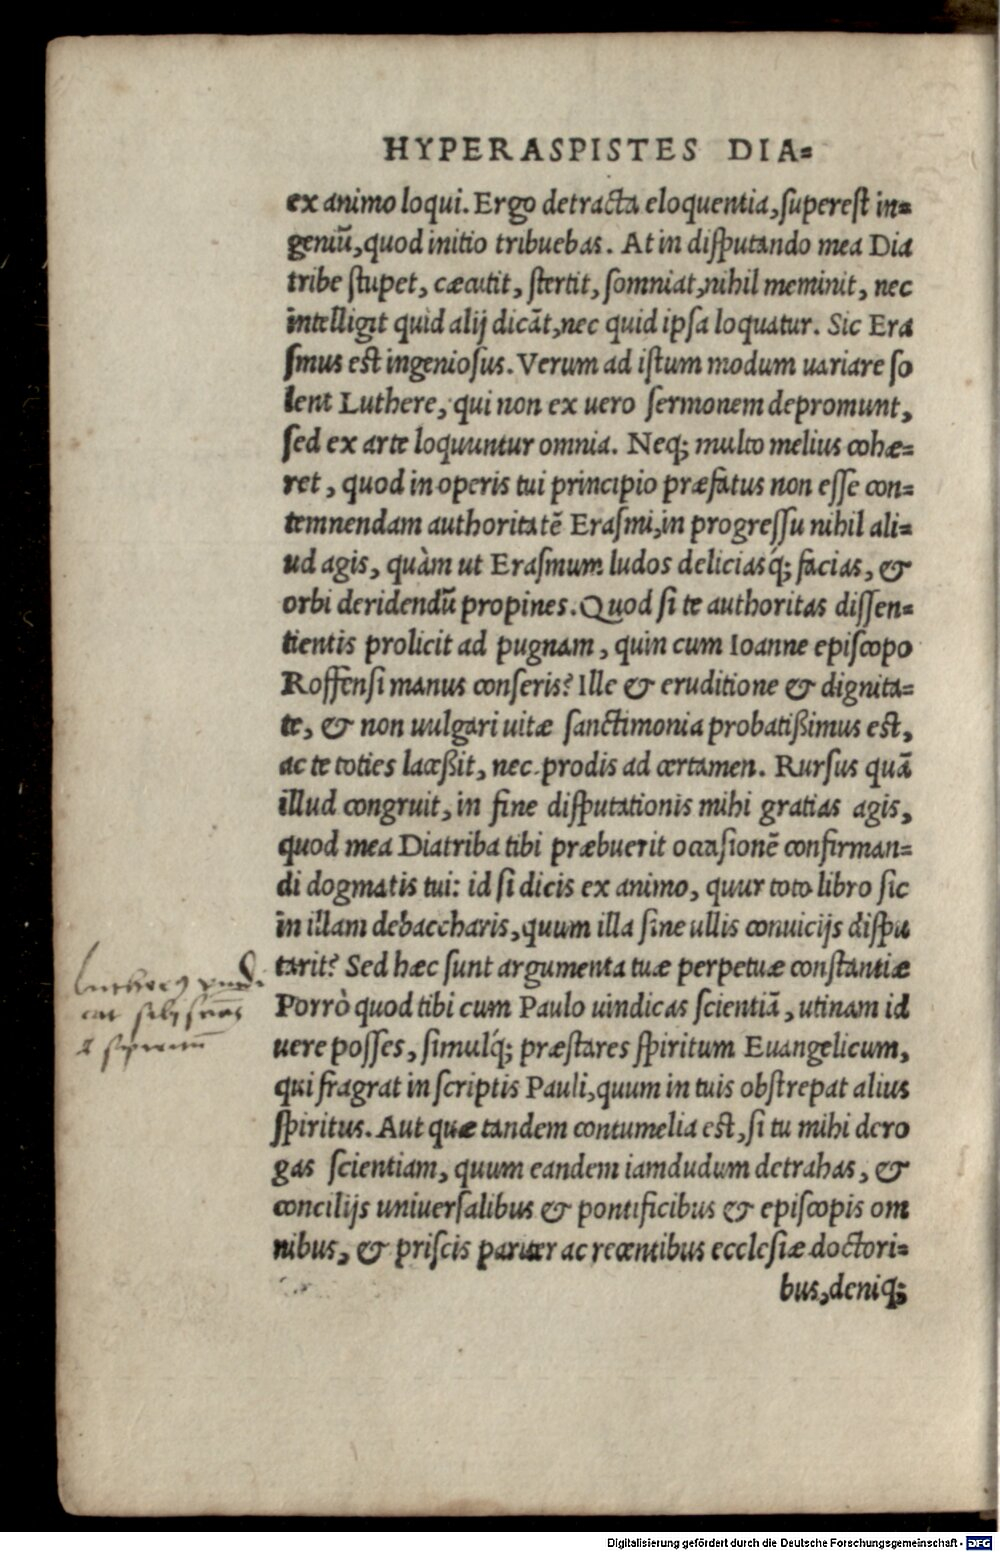 HYPERASPISTES DIA=
ex animo loqui. Ergo detracta eloquentia, superest in=
geniū, quod initio tribuebas. At in disputando mea Dia
tribe stupet, cæcutit, stertit, somniat, nihil meminit, nec
intelligit quid alij dicāt, nec quid ipsa loquatur. Sic Era
smus est ingeniosus. Verum ad istum modum uariare so
lent Luthere, qui non ex uero sermonem depromunt,
sed ex arte loquuntur omnia. Neq; multo melius cohæ=
ret, quod in operis tui principio præfatus non esse con=
temnendam authoritatē Erasmi, in progressu nihil ali=
ud agis, quàm ut Erasmum ludos deliciasq́; facias, &
orbi deridendū propines. Quod si te authoritas dissen=
tientis prolicit ad pugnam, quin cum Ioanne episcopo
Roffensi manus conseris? Ille & eruditione & dignita=
te, & non uulgari uitæ sanctimonia probatißimus est,
ac te toties laceßit, nec prodis ad certamen. Rursus quā
illud congruit, in fine disputationis mihi gratias agis,
quod mea Diatriba tibi præbuerit occasionē confirman=
di dogmatis tui: id si dicis ex animo, quur toto libro sic
in illam debaccharis, quum illa sine ullis conuicijs dispu
tarit? Sed hæc sunt argumenta tuæ perpetuæ constantiæ
Porrò quod tibi cum Paulo uindicas scientiā, utinam id
uere posses, simulq́; præstares spiritum Euangelicum,
qui fragrat in scriptis Pauli, quum in tuis obstrepat alius
spiritus. Aut quæ tandem contumelia est, si tu mihi dero
gas scientiam, quum eandem iamdudum detrahas, &
concilijs uniuersalibus & pontificibus & episcopis om
nibus, & priscis pariter ac recentibus ecclesiæ doctori=
bus, deniq;
Digitalisierung gefördert durch die Deutsche Forschungsgemeinschaft - DFG